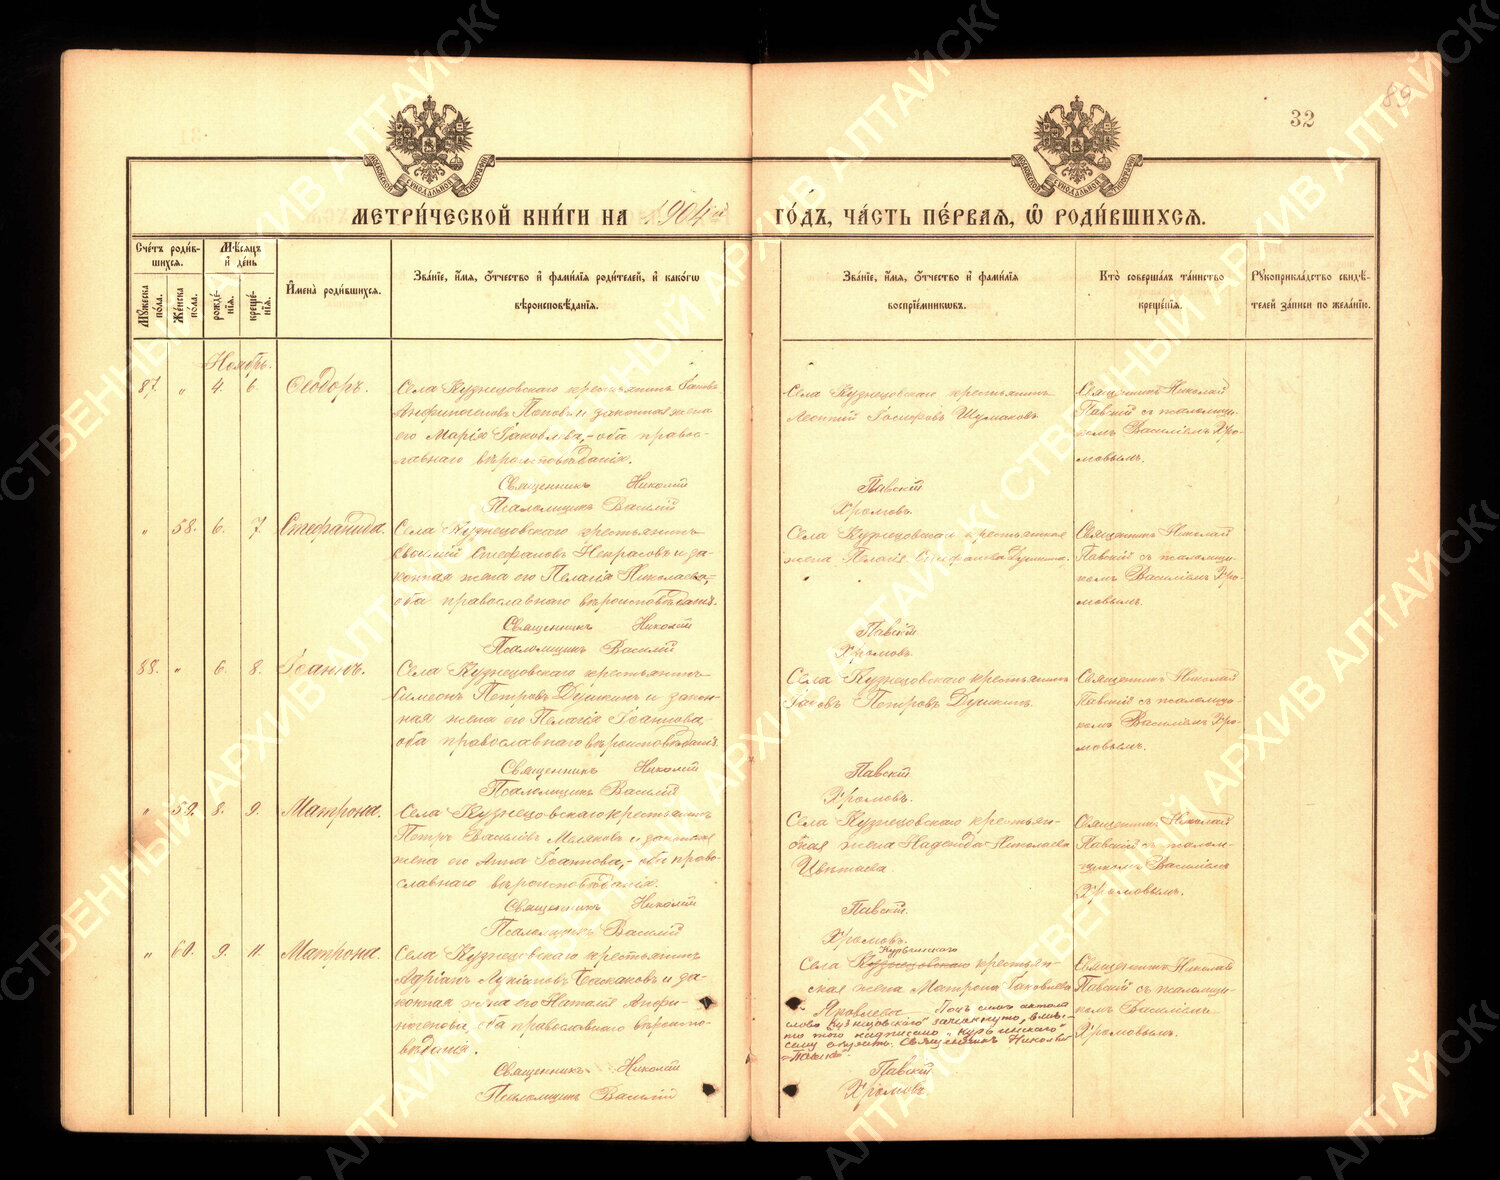 89
32
МЕТРИ́ЧЕСКОЙ КНИ́ГИ НА 1904й ГО́ДЪ, ЧА́СТЬ ПЕ́РВАЯ, Ѡ РОДИ́ВШИХСЯ.
Сче́тъ роди́вшихся.
Му́жеска по́ла.
Же́нска по́ла.
Мѣ́сяцъ и де́нь
рожде́нія.
креще́нія.
И҆мена̀ роди́вшихся.
Зва́ніе, и҆́мя, о҆́тчество и҆ фами́лія роди́телей, и҆ како́гѡ
вѣроисповѣ́данія.
Зва́ніе, и҆́мя, о҆́тчество и҆ фами́лія
воспріе́мниковъ.
Кто̀ соверша́лъ та́инство
креще́нія.
Рꙋкоприкла́дство свидѣ́-
телей за́писи по жела́нію.
Ноябрь.
87. " 4. 6. Ѳеодоръ.
Села Кузнецовскаго крестьянинъ Іаковъ
Анфиногеновъ Поповъ и законная жена
его Марія Іаковлева,-оба право-
славнаго вѣроисповѣданія.
Священникъ Николай
Псаломщикъ Василій
Села Кузнецовскаго крестьянинъ
Леонтій Іосифовъ Шумаковъ
Павскій
Хромовъ.
Священникъ Николай
Павскій съ псаломщи-
комъ Василіемъ Хро-
мовымъ.
" 58. 6. 7. Стефанида.
Села Кузнецовскаго крестьянинъ
Василій Стефановъ Некрасовъ и за-
конная жена его Пелагія Николаева,-
оба православнаго вѣроисповѣданія.
Священникъ Николай
Псаломщикъ Василій
Села Кузнецовскаго крестьянская
жена Пелагія Душкина.
Павскій
Хромовъ.
Священникъ Николай
Павскій съ псаломщи-
комъ Василіемъ Хро-
мовымъ.
88. " 6. 8. Іоаннъ.
Села Кузнецовскаго крестьянинъ
Симеонъ Петровъ Душкинъ и закон-
ная жена его Пелагія Іоаннова,-
оба православнаго вѣроисповѣданія.
Священникъ Николай
Псаломщикъ Василій
Села Кузнецовскаго крестьянинъ
Іаковъ Петровъ Душкинъ.
Павскій
Хромовъ.
Священникъ Николай
Павскій съ псаломщи-
комъ Василіемъ Хро-
мовымъ.
" 59. 8. 9. Матрона.
Села Кузнецовскаго крестьянинъ
Петръ Василіевъ и законная
жена его Анна Іоаннова,-оба право-
славнаго вѣроисповѣданія.
Священникъ Николай
Псаломщикъ Василій
Села Кузнецовскаго крестьян-
ская жена Надежда Николаева
Цвѣтаева
Павскій.
Хромовъ.
Священникъ Николай
Павскій съ псалом-
щикомъ Василіемъ
Хромовымъ.
" 60. 9. 11. Матрона.
Села Кузнецовскаго крестьянинъ
Адріанъ Лукіановъ Баскаковъ и за-
конная жена его Наталія Анфи-
ногенова, оба православнаго вѣроиспо-
вѣданія.
Священникъ Николай
Псаломщикъ Василій
Курьинскаго
Села Кузнецовскаго крестьян-
ская жена Матрона Іаковлева
Яковлева Подъ симъ актомъ
слово „Кузнецовскаго" зачеркнуто, вмѣс-
то того надписано „Курьинскаго"
Священникъ Николай
Павскій
Павскій
Хромовъ
Священникъ Николай
Павскій съ псаломщи-
комъ Василіемъ
Хромовымъ.